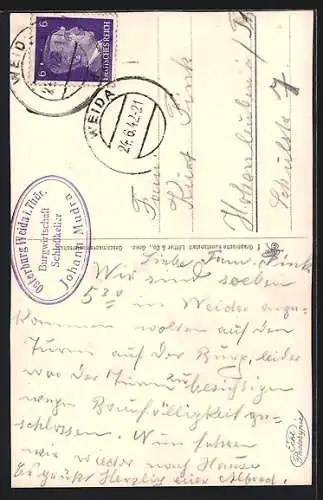 WEIDA
6 DEUTSCHES REICH 6
WEIDA
24.6.42-21
Fam.
Kurt Fink
Hohenleuben/Th
Schulstr. 7.
Osterburg Weida i. Thür.
Burgwirtschaft
Schloßkeller
Johann Mudra
Liebe Fam. Fink
Wir sind soeben
5 30 in Weida ange-
kommen wollten auf den
Turm auf der Burg, leider
war der Turm zu besichtigen
wegen Baufälligkeit ge-
schlossen. Nun fahren
wir wieder nach Hause
Es grüßt Herzlich euer Alfred.
Echte
Photographie